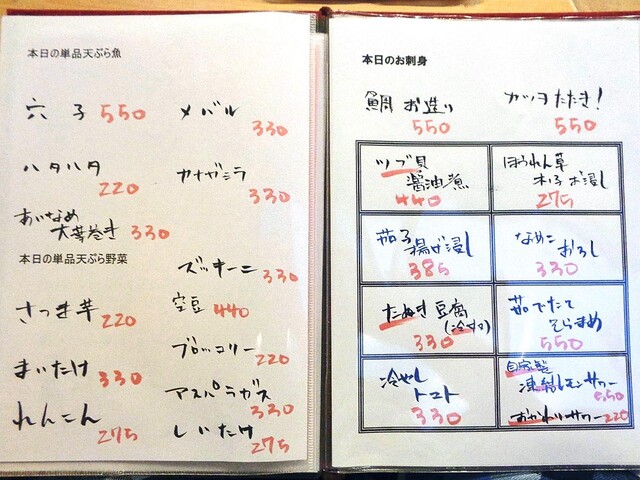 本日の単品天ぷら魚
穴子 550
メバル 330
ハタハタ 220
カナガシラ 330
あいなめ
大葉巻き 330
本日の単品天ぷら野菜
ズッキーニ 330
さつま芋 220
空豆 440
ブロッコリー 220
まいたけ 330
アスパラガス 330
れんこん 275
しいたけ 275
本日のお刺身
鯛お造り 550
カツオたたき! 550
ツブ貝
醤油漬
440
ほうれん草
お浸し
275
茄子
揚げ浸し
385
なめこ
おろし
330
たぬき豆腐
(冷やっこ)
330
茹でたて
そらまめ
550
冷やし
トマト
330
自家製
凍結レモンサワー
550
おかわりサワー 220